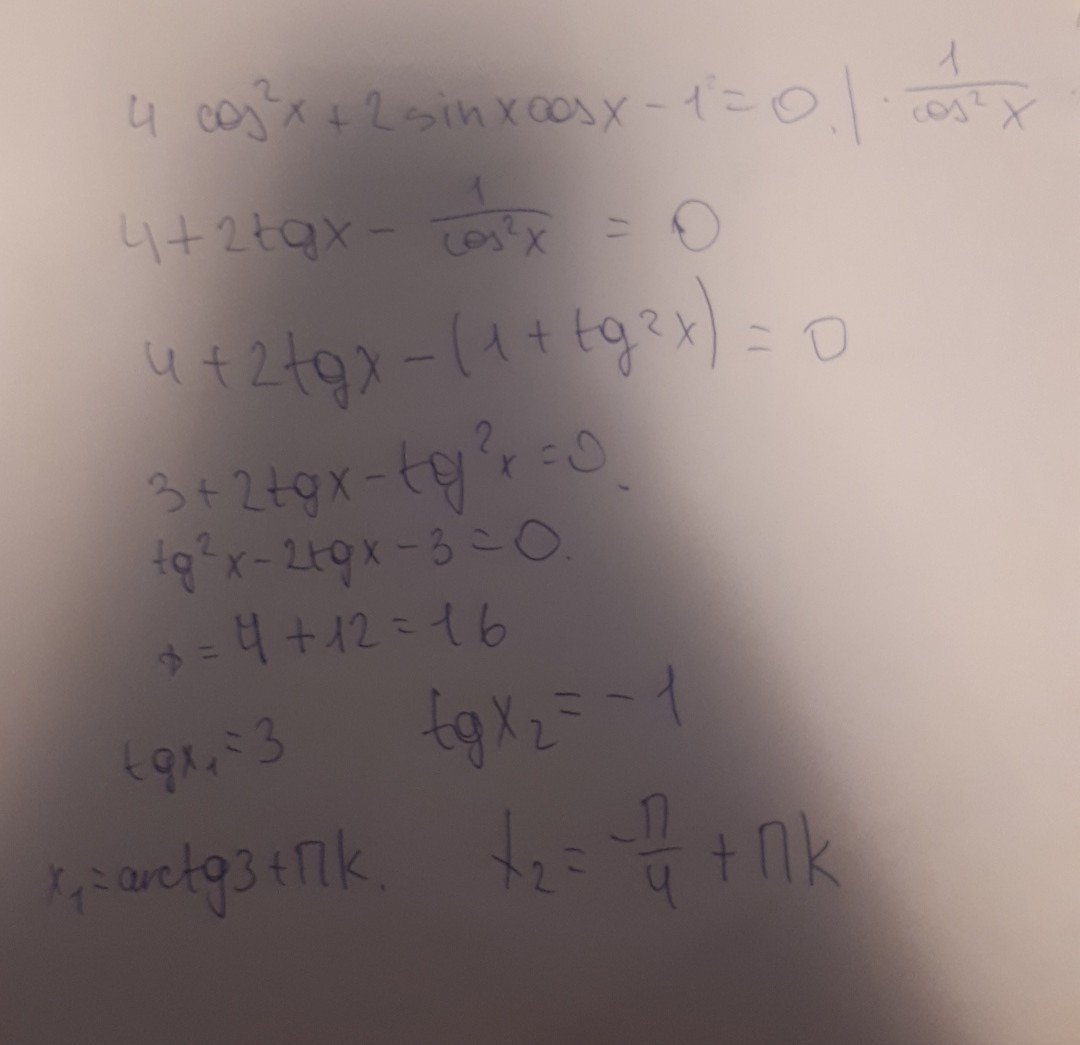 4 cos²x + 2 sinx cosx - 1 = 0. | · 1/cos²x
4 + 2tgx - 1/cos²x = 0
4 + 2tgx - (1 + tg²x) = 0
3 + 2tgx - tg²x = 0.
tg²x - 2tgx - 3 = 0.
D = 4 + 12 = 16
tgx₁ = 3 tgx₂ = -1
x₁ = arctg3 + Πk. x₂ = -Π/4 + Πk